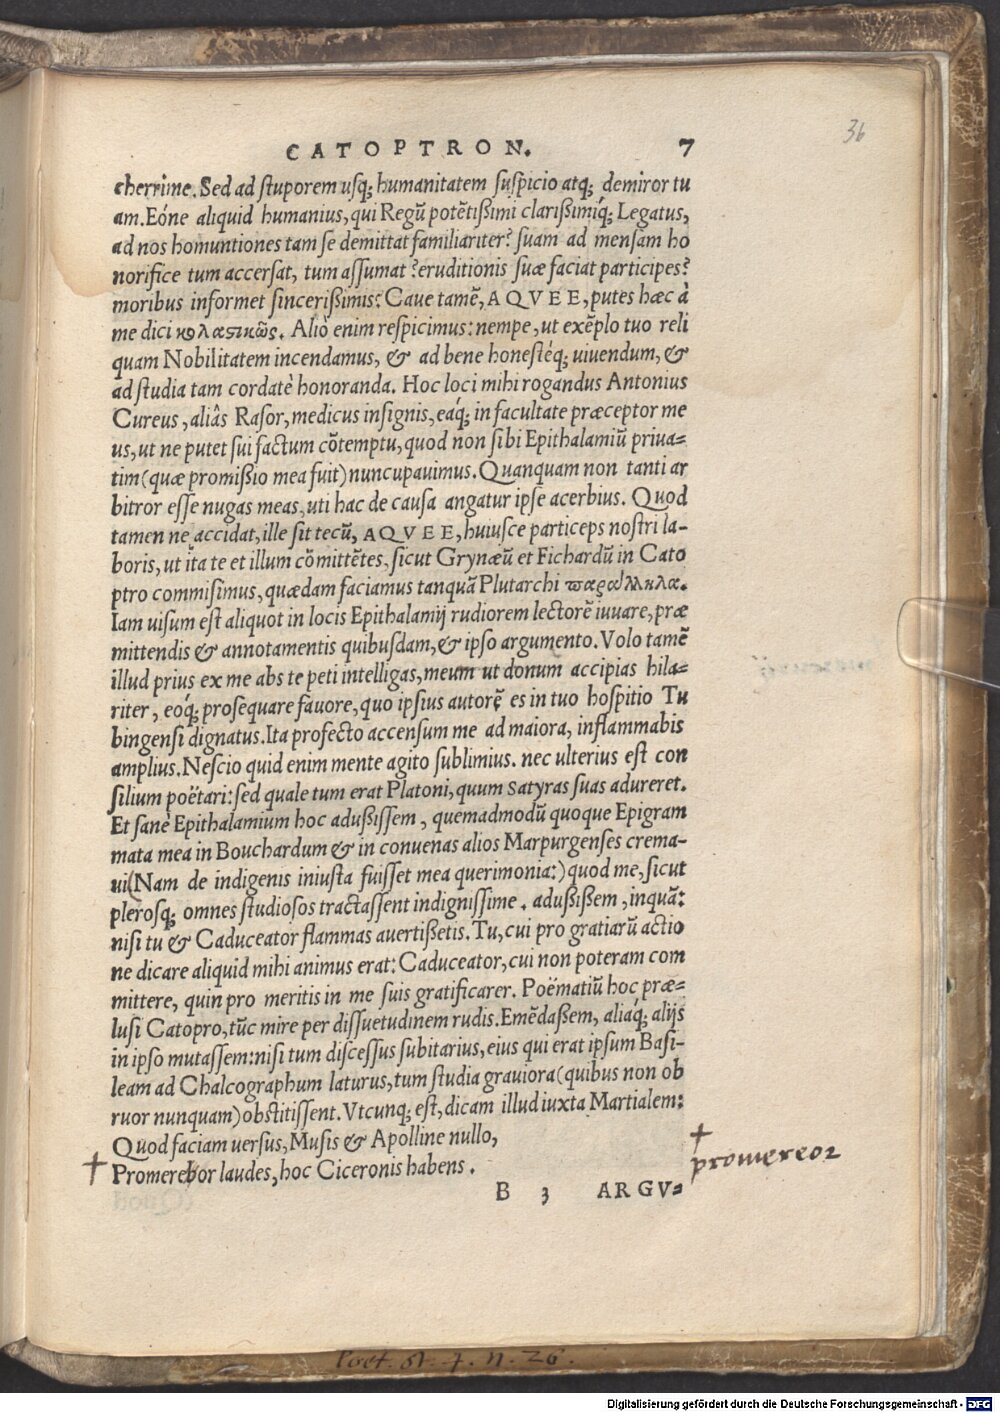 36
CATOPTRON. 7
cherrime. Sed ad ſtuporem uſq; humanitatem ſuſpicio atq; demiror tu
am. Eóne aliquid humanius, qui Regū potētißimi clarißimíq; Legatus,
ad nos homuntiones tam ſe demittat familiariter? ſuam ad menſam ho
norifice tum accerſat, tum aſſumat ? eruditionis ſuæ faciat participes?
moribus informet ſincerißimis? Caue tamē, AQVEE, putes hæc à
me dici κολαστικῶς. Aliò enim reſpicimus: nempe, ut exēplo tuo reli
quam Nobilitatem incendamus, & ad bene honeſtéq; uiuendum, &
ad ſtudia tam cordatè honoranda. Hoc loci mihi rogandus Antonius
Cureus, aliâs Raſor, medicus inſignis, eáq; in facultate præceptor me
us, ut ne putet ſui factum cōtemptu, quod non ſibi Epithalamiū priua=
tim (quæ promißio mea fuit) nuncupauimus. Quanquam non tanti ar
bitror eſſe nugas meas, uti hac de cauſa angatur ipſe acerbius. Quod
tamen ne accidat, ille ſit tecū, AQVEE, huiuſce particeps noſtri la-
boris, ut ita te et illum cōmittētes, ſicut Grynæū et Fichardū in Cato
ptro commiſimus, quædam faciamus tanquā Plutarchi παράλληλα.
Iam uiſum eſt aliquot in locis Epithalamij rudiorem lectorē iuuare, præ
mittendis & annotamentis quibuſdam, & ipſo argumento. Volo tamē
illud prius ex me abs te peti intelligas, meum ut donum accipias hila=
riter, eóq; proſequare fauore, quo ipſius autorē es in tuo hoſpitio Tu
bingenſi dignatus. Ita profecto accenſum me ad maiora, inflammabis
amplius. Neſcio quid enim mente agito ſublimius. nec ulterius eſt con
ſilium poëtari: ſed quale tum erat Platoni, quum Satyras ſuas adureret.
Et ſanè Epithalamium hoc adußiſſem, quemadmodū quoque Epigram
mata mea in Bouchardum & in conuenas alios Marpurgenſes crema-
ui (Nam de indigenis iniuſta fuiſſet mea querimonia:) quod me, ſicut
pleroſq; omnes ſtudioſos tractaſſent indigniſſime. adußißem, inquā:
niſi tu & Caduceator flammas auertißetis. Tu, cui pro gratiarū actio
ne dicare aliquid mihi animus erat: Caduceator, cui non poteram com
mittere, quin pro meritis in me ſuis gratificarer. Poëmatiū hoc præ=
luſi Catopro, tūc mire per diſſuetudinem rudis. Emēdaßem, aliáq; alijs
in ipſo mutaſſem: niſi tum diſceſſus ſubitarius, eius qui erat ipſum Baſi-
leam ad Chalcographum laturus, tum ſtudia grauiora (quibus non ob
ruor nunquam) obſtitiſſent. Vtcunq; eſt, dicam illud iuxta Martialem:
Quod faciam uerſus, Muſis & Apolline nullo,
† Promerebor laudes, hoc Ciceronis habens.
† promereor
B 3 ARGV=
Poet. st. 7. n. 26.
Digitalisierung gefördert durch die Deutsche Forschungsgemeinschaft - DFG